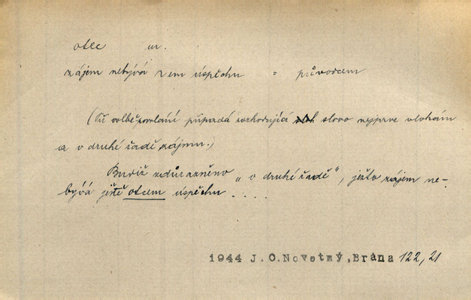 otec m.
zájem nebývá sem úspěchu = původcem
(Při volbě povolání připadá rozhodující slovo nejprve vlohám
a v druhé řadě zájmu.)
Budiž zdůrazněno „v druhé řadě", ježto zájem ne-
bývá ještě otcem úspěchu . . . .
1944 J.O.Novotný, Brána 122, 21